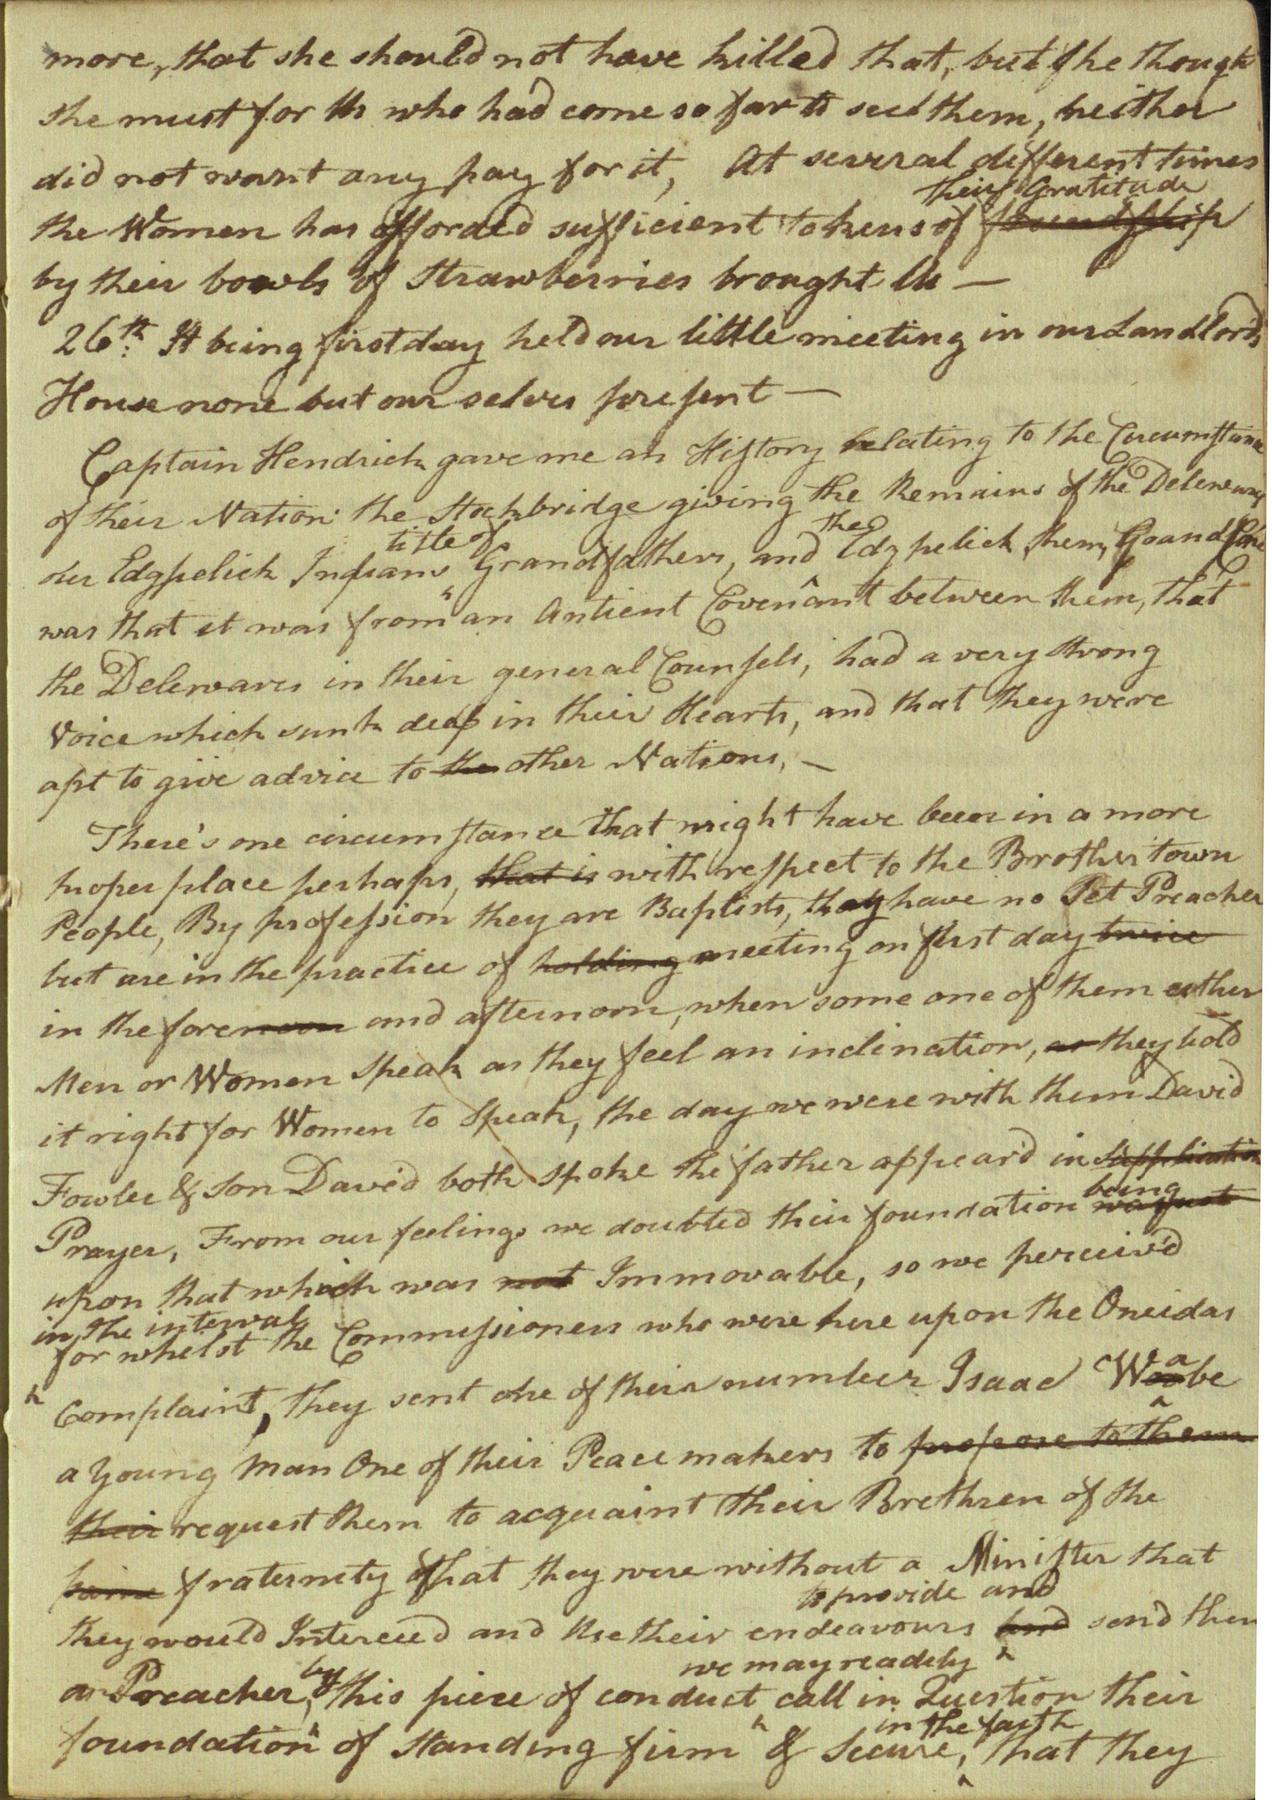 more, that she should not have killed that, but she though
she must for Us who had come so far to see them, neither
did not want any pay for it, At several different times
their Gratitude
the Women has afforded sufficient tokens of friendship
by their bowls of Strawberries brought Us —
26th. It being first day held our little meeting in our Landlords
House none but our selves present —
Captain Hendrick gave me an History relating to the Circumstance
of their Nation the Stockbridge giving the Remains of the Delewares
title of the
or Edgpelick Indians Grandfathers, and Edgpelick them, Grand
was that it was from an Antient Covenant between them, that
the Delewares in their general Counsels, had a very strong
Voice which sunk deep in their Hearts, and that they were
apt to give advice to the other Nations, —
There's one circumstance that might have been in a more
proper place perhaps, that is with respect to the Brothertown
People, By profession they are Baptists, they have no Pet Preacher
but are in the practice of holding meeting on first day twice
in the forenoon and afternoon, when some one of them either
Men or Women speak as they feel an inclination, as they hold
it right for Women to Speak, the day we were with them David
Fowler & Son David both spoke the father appear'd in supplication
being
Prayer, From our feelings we doubted their foundation was not
upon that which was not Immovable, so we perceiv'd
in the interval
for whilst the Commissioners who were here upon the Oneidas
a
Complaint, they sent one of their number Isaac Woobe
a Young Man One of their Peacemakers to propose to them
their request them to acquaint their Brethren of the
same fraternity that they were without a Minister that
to provide and
they would Interceed and Use their endeavours and send them
we may readily
by
a Preacher, this piece of conduct call in Question their
in the faith
foundation of Standing firm & Secure, that they